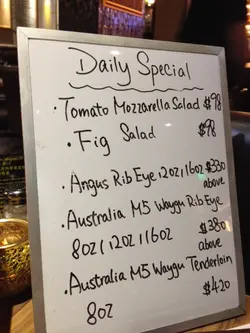 Daily Special
· Tomato Mozzarella Salad $98
· Fig Salad $98
· Angus Rib Eye 12oz/16oz $330
above
· Australia M5 Waygu Rib Eye
8oz/12oz/16oz $380
above
· Australia M5 Waygu Tenderloin
8oz $420